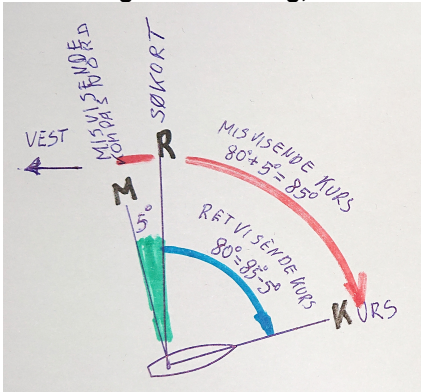 MISVISENDE
KOMPAS NORD
SØKORT
VEST
R
M
5°
MISVISENDE KURS
80°+5°=85°
RETVISENDE KURS
80°=85-5°
KURS